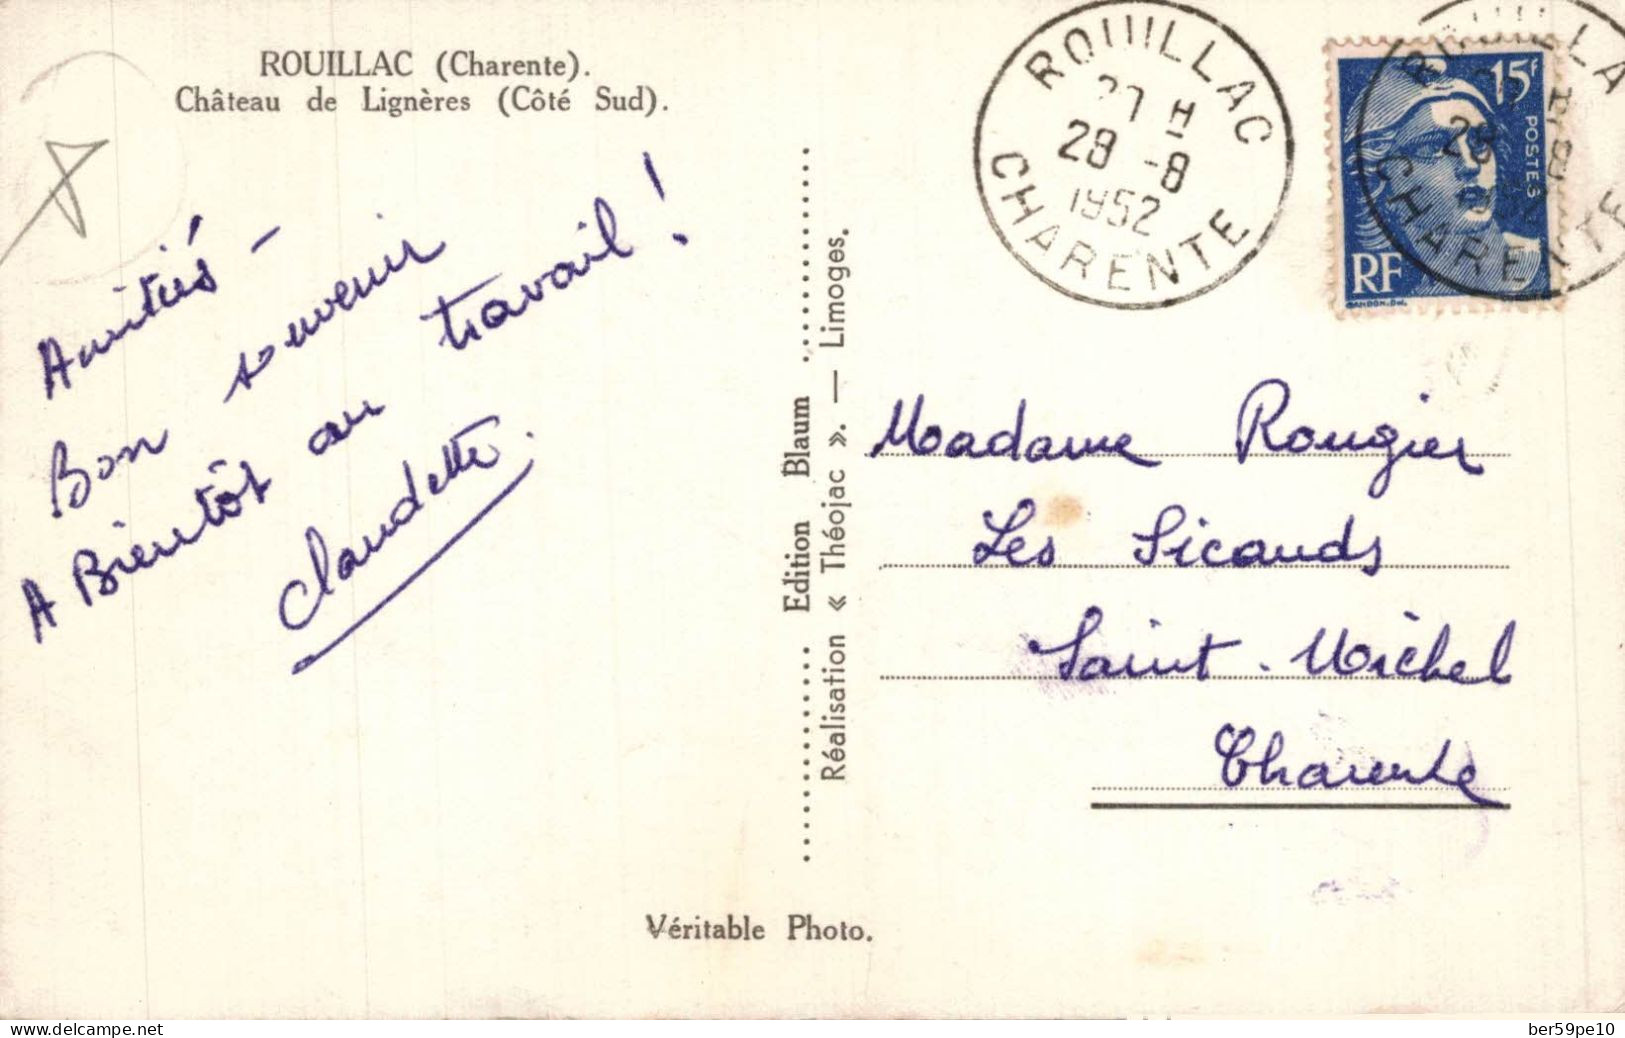 ROUILLAC (Charente).
Château de Lignères (Côté Sud).
Amitiés -
Bon souvenir
A Bientôt au travail !
Claudette.
Edition Blaum
Réalisation « Théojac ». — Limoges.
Véritable Photo.
ROUILLAC
H
28 -8
1952
CHARENTE
15F
POSTES
RF
GANDON.DEL.
ROUILLA
28 8
1952
CHARENTE
Madame Rougier
Les Sicauds
Saint-Michel
Charente
delcampe.net
ber59pe10